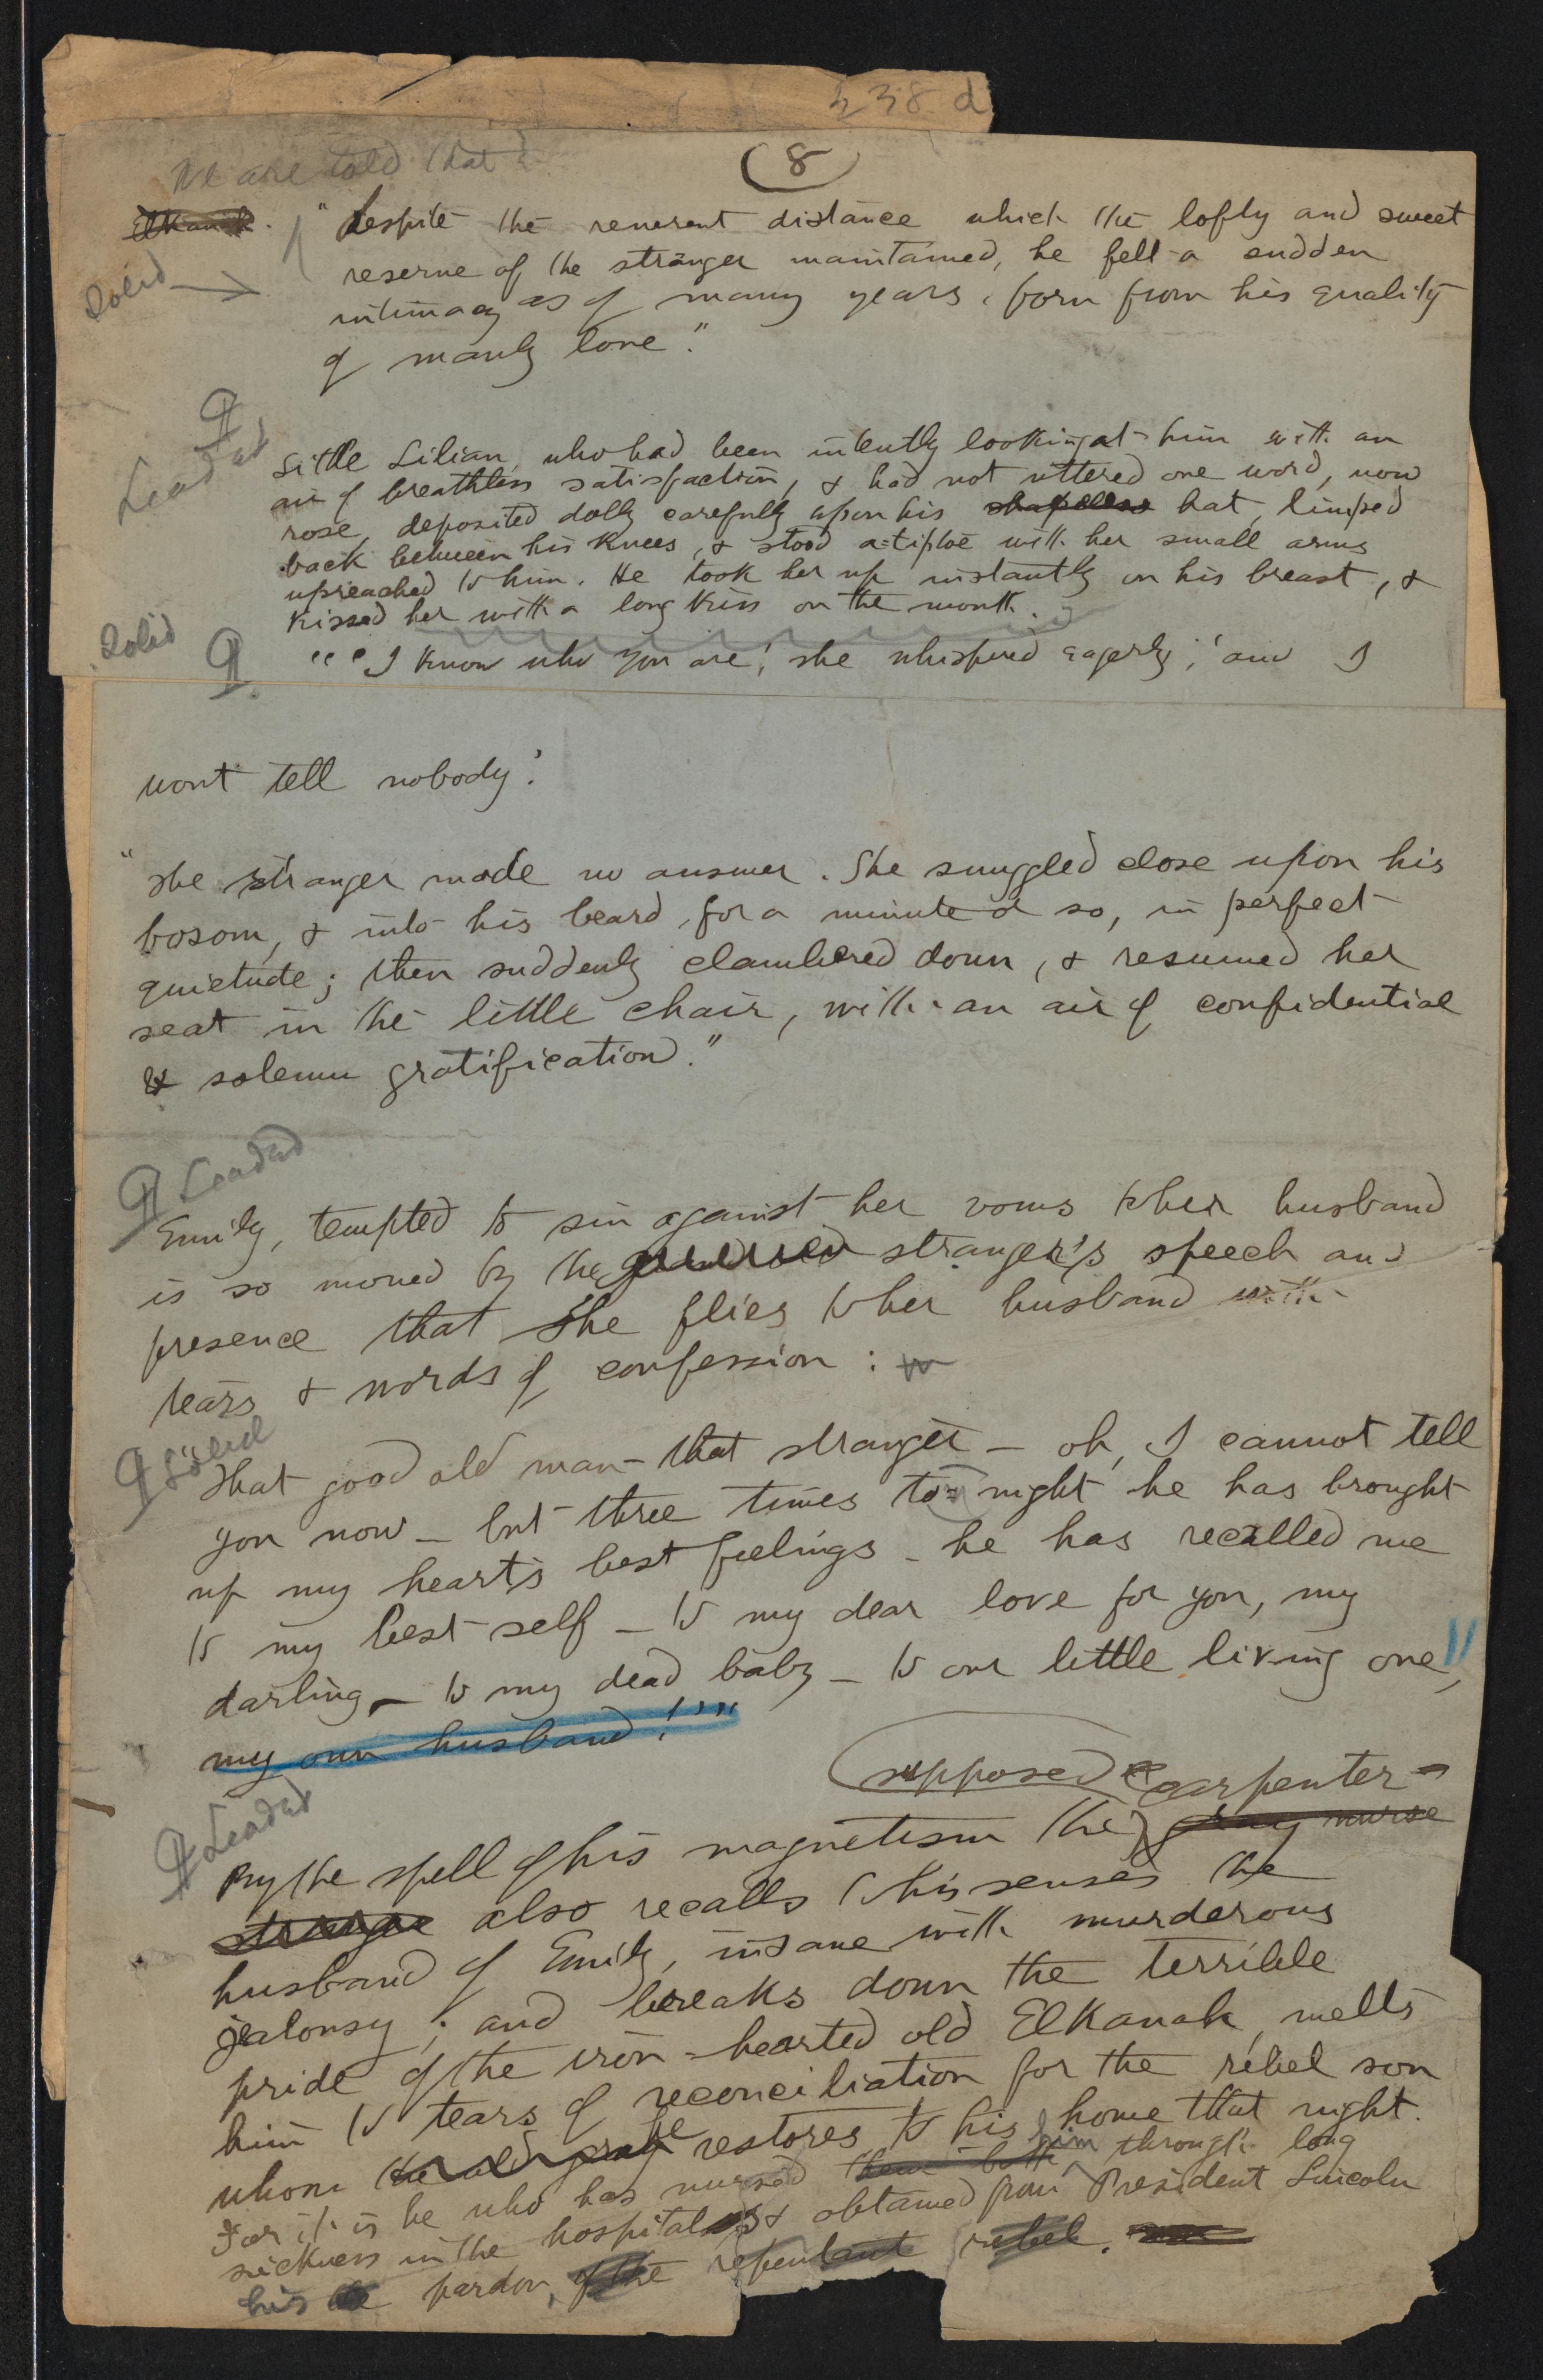 238 d
We are told that
(8)
Elkanah.
"Despite the reverent distance which the lofty and sweet
Solid
reserve of the stranger maintained, he felt a sudden
intimacy as of many years, born from his quality
of manly love."
¶ Leaded
Little Lilian, who had been intently looking at him with an
air of breathless satisfaction, & had not uttered one word, now
rose, deposited dolly carefully upon his shapeless hat, limped
back between his knees, & stood a-tiptoe with her small arms
upreached to him. He took her up instantly on his breast, &
kissed her with a long kiss on the mouth.
Solid ¶
"'I know who you are,' she whispered eagerly; 'and I
wont tell nobody.'
"The stranger made no answer. She snuggled close upon his
bosom, & into his beard, for a minute or so, in perfect
quietude; then suddenly clambered down, & resumed her
seat in the little chair, with an air of confidential
& solemn gratification."
¶ Leaded
Emily, tempted to sin against her vows to her husband
is so moved by the stranger's speech and
presence that she flies to her husband with
tears & words of confession:
¶ Solid
That good old man—that stranger—oh, I cannot tell
you now—but three times to-night he has brought
up my heart's best feelings—he has recalled me
to my best self—to my dear love for you, my
darling—to my dead baby—to our little living one,"
my own husband!'"
supposed carpenter
¶ Leaded
By the spell of his magnetism the gray nurse
stranger also recalls to his senses the
husband of Emily, insane with murderous
jealousy; and breaks down the terrible
pride of the iron-hearted old Elkanah, melts
him to tears of reconciliation for the rebel son
whom the old gray he restores to his home that night.
For it is he who has nursed them both him through long
sickness in the hospital & obtained from President Lincoln
his pardon, of the repentant rebel.